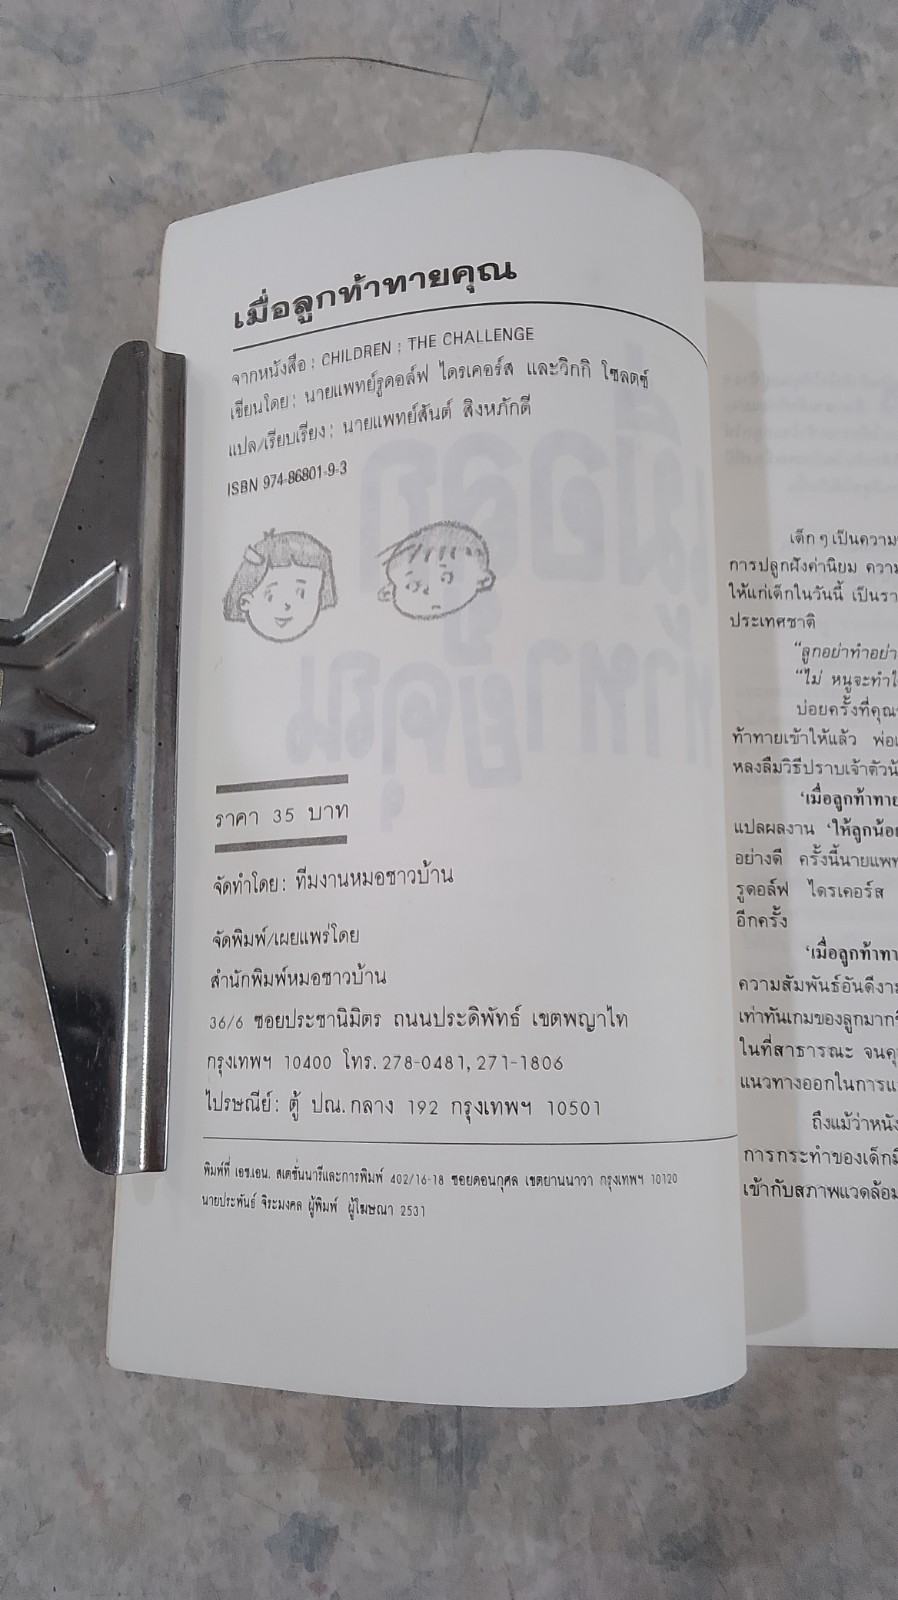 เมื่อลูกท้าทายคุณ
จากหนังสือ : CHILDREN : THE CHALLENGE
เขียนโดย : นายแพทย์รูดอล์ฟ ไดรเคอร์ส และวิกกิ โซลตซ์
แปล/เรียบเรียง : นายแพทย์สันต์ สิงหภักดี
ISBN 974-86801-9-3
ราคา 35 บาท
จัดทำโดย : ทีมงานหมอชาวบ้าน
จัดพิมพ์/เผยแพร่โดย
สำนักพิมพ์หมอชาวบ้าน
36/6 ซอยประชานิมิตร ถนนประดิพัทธ์ เขตพญาไท
กรุงเทพฯ 10400 โทร. 278-0481, 271-1806
ไปรษณีย์ : ตู้ ปณ. กลาง 192 กรุงเทพฯ 10501
พิมพ์ที่ เอช.เอน. สเตชั่นนารีและการพิมพ์ 402/16-18 ซอยดอนกุศล เขตยานนาวา กรุงเทพฯ 10120
นายประพันธ์ จิระมงคล ผู้พิมพ์ ผู้โฆษณา 2531
เด็ก ๆ เป็นความ
การปลูกฝังค่านิยม ความ
ให้แก่เด็กในวันนี้ เป็นรา
ประเทศชาติ
“ลูกอย่าทำอย่า
“ไม่ หนูจะทำ
บ่อยครั้งที่คุณ
ท้าทายเข้าให้แล้ว พ่อ
หลงลืมวิธีปราบเจ้าตัวน้
‘เมื่อลูกท้าทาย
แปลผลงาน ‘ให้ลูกน้อ
อย่างดี ครั้งนี้นายแพท
รูดอล์ฟ ไดรเคอร์ส
อีกครั้ง
‘เมื่อลูกท้าทา
ความสัมพันธ์อันดีงา
เท่าทันเกมของลูกมาก
ในที่สาธารณะ จนคุ
แนวทางออกในการแ
ถึงแม้ว่าหนัง
การกระทำของเด็กมี
เข้ากับสภาพแวดล้อม